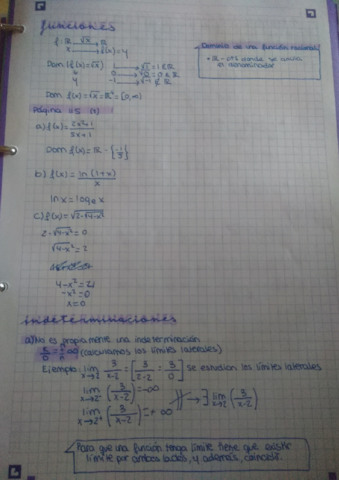 funciones
f: ℝ —√x→ ℝ
x → f(x)=y
Dominio de una función racional
• ℝ - {x's donde se anula
el denominador
Dom (f(x)=√x)
1 → √1 = 1 ∈ ℝ
0 → √0 = 0 ∈ ℝ
-1 → √-1 ∉ ℝ
Dom f(x)=√x = ℝ⁺ = [0,∞)
Página
a) f(x) = 2x²+1 / 5x+1
Dom f(x) = ℝ - {-1/5}
b) f(x) = ln(1+x) / x
ln x = logₑ x
c) f(x) = √2-√4-x²
2-√4-x² = 0
√4-x² = 2
4-x² = 4
-x² = 0
x = 0
indeterminaciones
a) No es propiamente una indeterminación
k/0 = ±∞ (calculamos los límites laterales)
Ejemplo: lim x→2 3/x-2 = [3/2-2 = 3/0] se estudian los límites laterales
lim x→2⁻ (3/x-2) = -∞
lim x→2⁺ (3/x-2) = +∞
→ ∄ lim x→2 (3/x-2)
Para que una función tenga límite tiene que existir
límite por ambos lados, y además, coincidir.